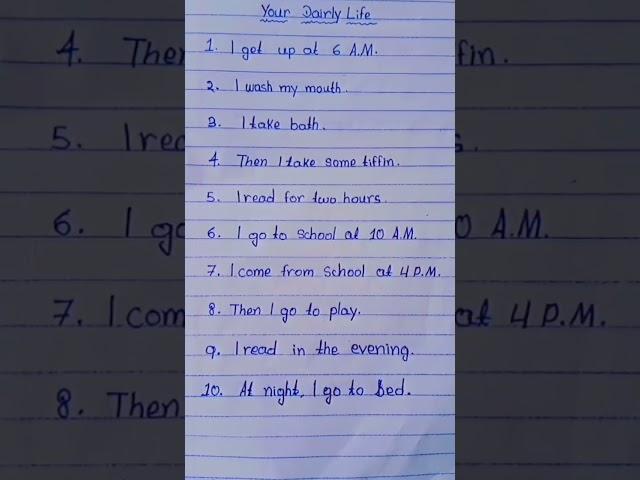 Your Dairly Life
1. I get up at 6 A.M.
2. I wash my mouth.
3. I take bath.
4. Then I take some tiffin.
5. I read for two hours.
6. I go to school at 10 A.M.
7. I come from school at 4 P.M.
8. Then I go to play.
9. I read in the evening.
10. At night, I go to Bed.